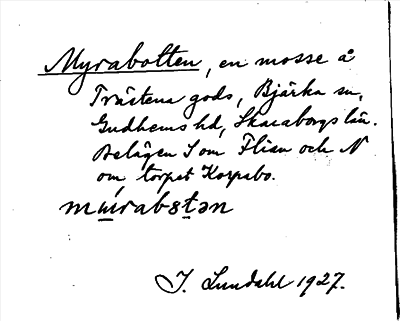 Myrabotten, en mosse å
Trästena gods, Bjärka sn,
Gudhems hd, Skaraborgs län.
Belägen S om Flian och N
om torpet Korpabo.
I. Lundahl 1927.